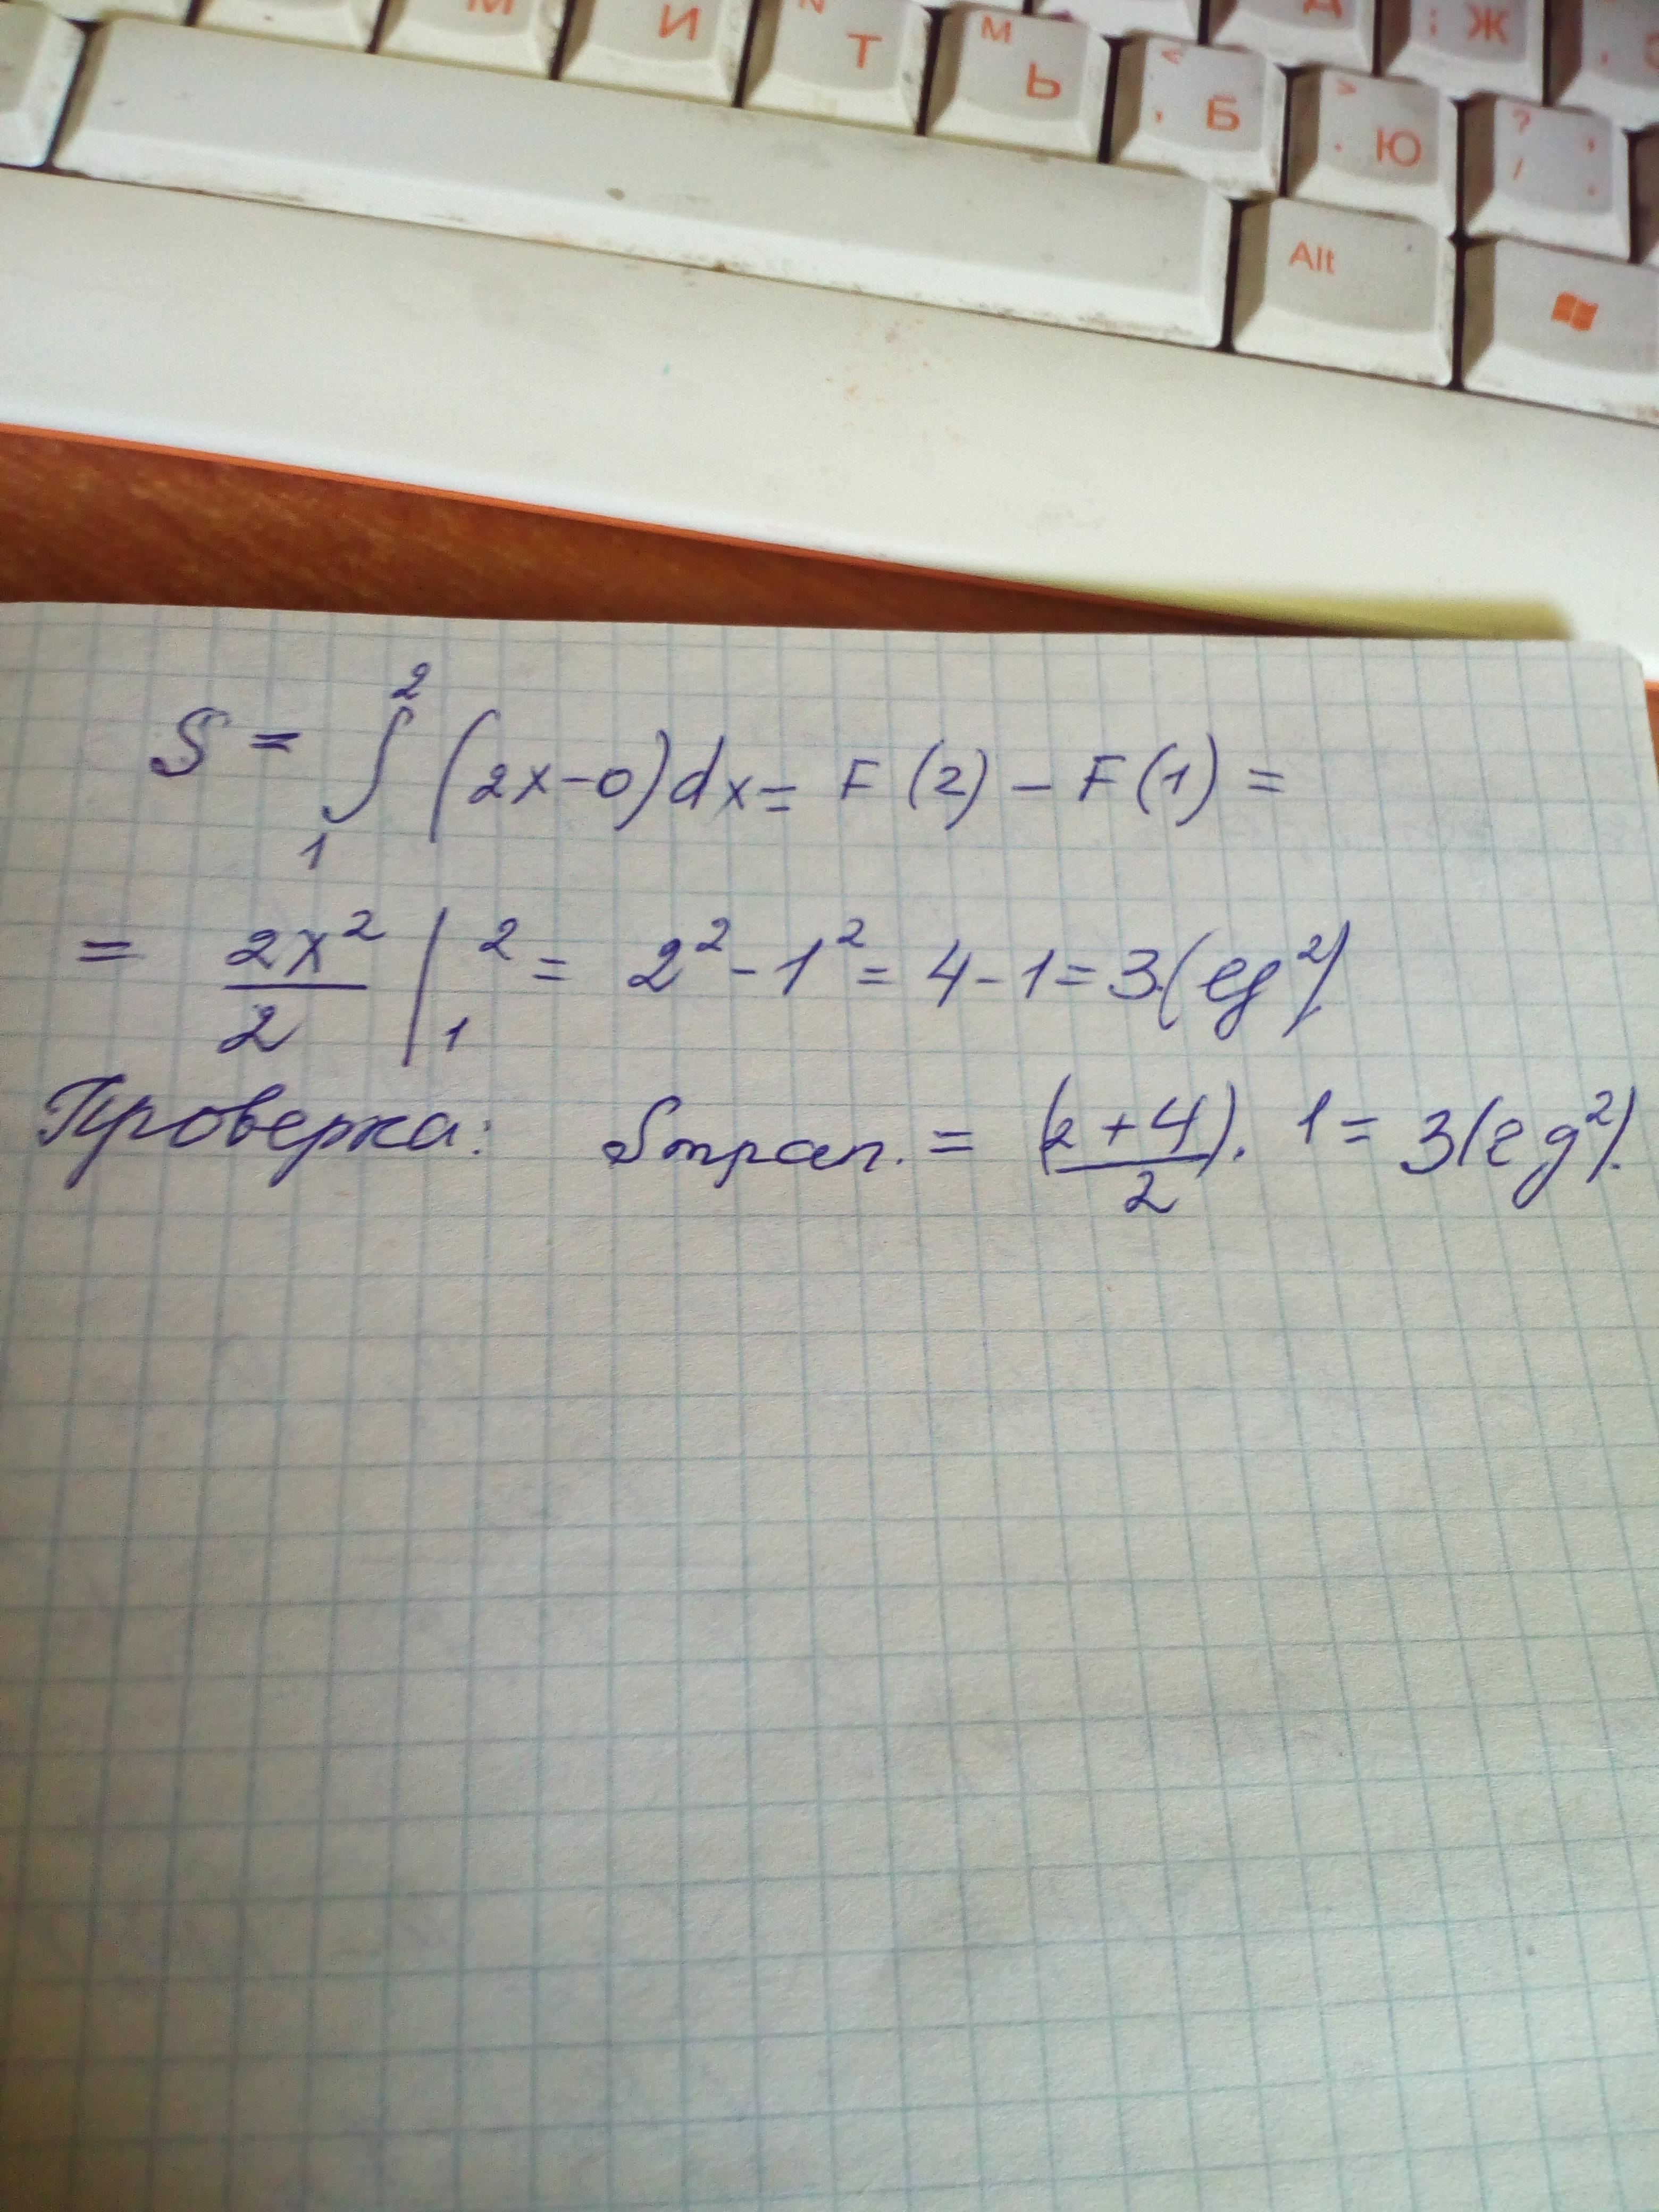 М И N Т М Ь < , Б > . Ю ? / , . ; Ж
Alt
S = ∫₁² (2x-0)dx = F(2) - F(1) =
= 2x²/2 |₁² = 2² - 1² = 4 - 1 = 3(ед²)
Проверка: Sтрап. = (2+4)/2 · 1 = 3(ед²).